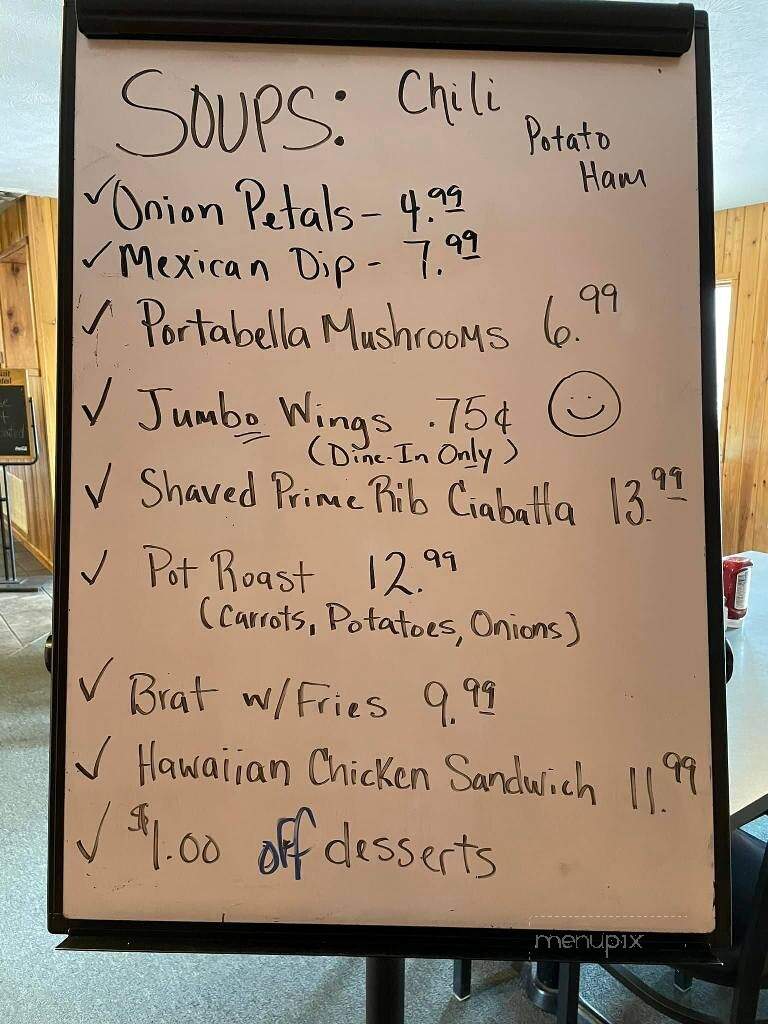 SOUPS: Chili
Potato
Ham
✓ Onion Petals - 4.99
✓ Mexican Dip - 7.99
✓ Portabella Mushrooms 6.99
✓ Jumbo Wings .75¢
(Dine-In Only)
✓ Shaved Prime Rib Ciabatta 13.99
✓ Pot Roast 12.99
(Carrots, Potatoes, Onions)
✓ Brat w/Fries 9.99
✓ Hawaiian Chicken Sandwich 11.99
✓ $1.00 off desserts
menupix